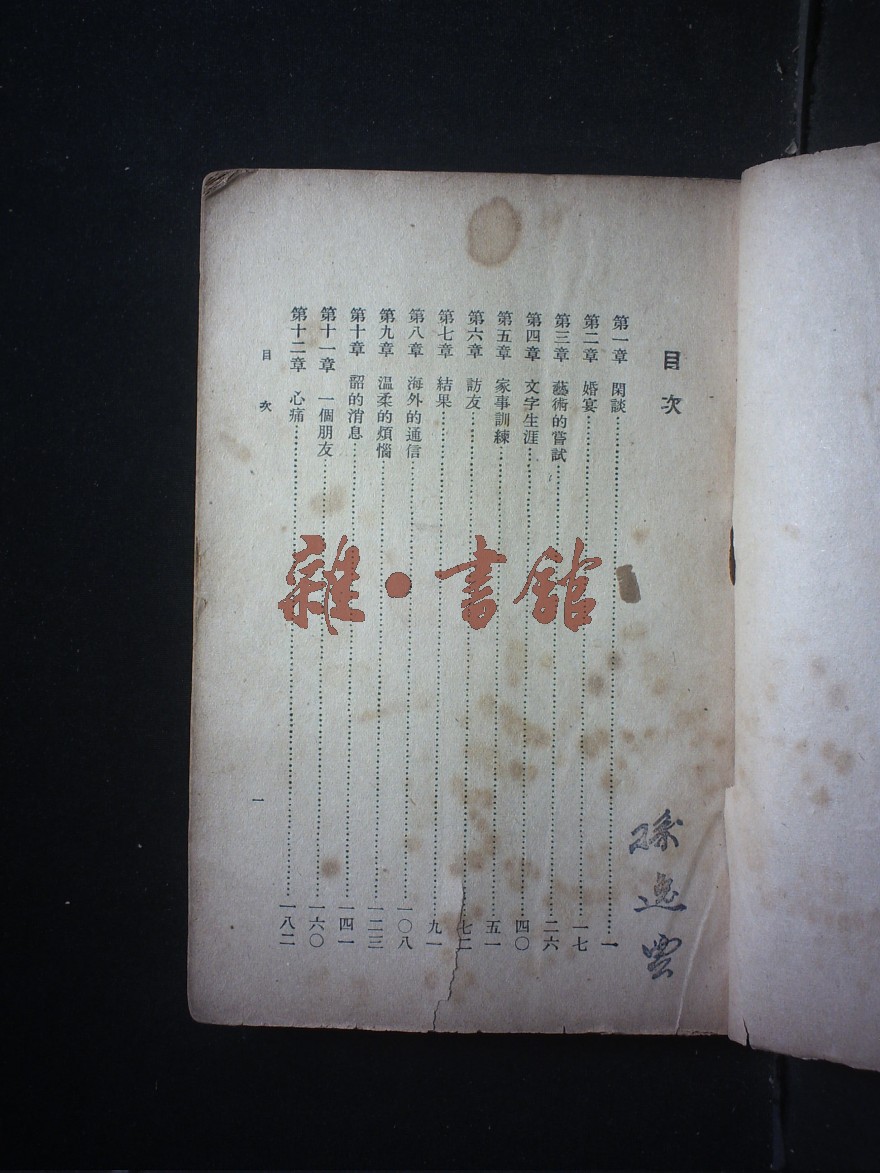 目次
第一章 閑談……一
第二章 婚宴……一七
第三章 藝術的嘗試……二六
第四章 文字生涯……四〇
第五章 家事訓練……五一
第六章 訪友……七二
第七章 結果……九一
第八章 海外的通信……一〇八
第九章 溫柔的煩惱……一二三
第十章 韶的消息……一四一
第十一章 一個朋友……一六〇
第十二章 心痛……一八二
目次 一
雜·書館
孫逸雲